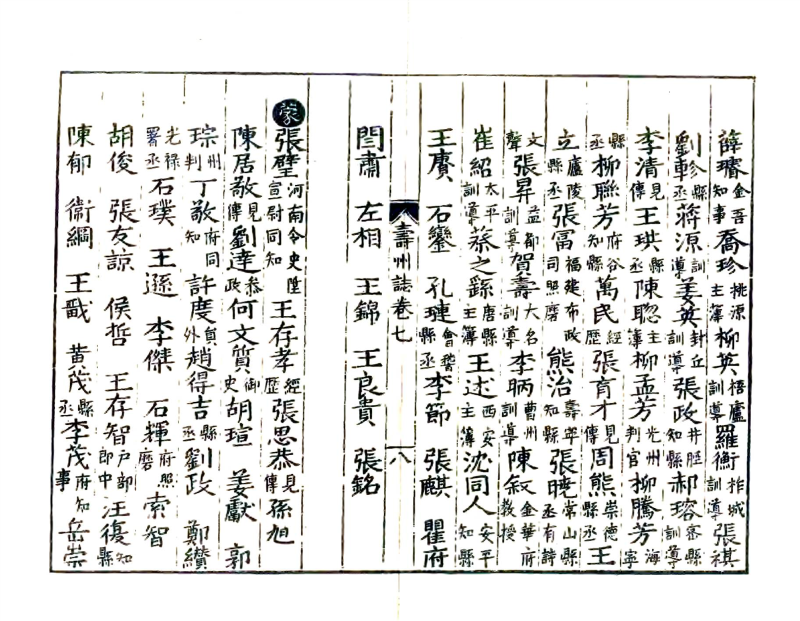 薛璿金吾知事 喬珍桃源主簿 柳英梧廬訓導 羅衡柞城訓導 張祺
劉軫縣丞 蔣源訓導 姜英封丘訓導 張政井陘知縣 郝瑢密縣訓導
李清見傳 王珙縣丞 陳聰主簿 柳孟芳光州判官 柳騰芳海寧
縣丞 柳聯芳府谷知縣 萬民經歷 張育才見傳 周熊崇德縣丞 王
立廬陵縣丞 張冨福建布政司照磨 熊治壽寧知縣 張曉常山縣丞有詩
文聲 張昇益都訓導 賀壽大名訓導 李昞曹州訓導 陳叙金華府教授
崔紹太平訓導 蔡之䌷唐縣主簿 王述西安主簿 沈同人安平知縣
王賡 石鑾 孔璉會稽縣丞 李節 張麒 瞿府
閆肅 左相 王錦 王良貴 張銘
壽州誌卷七 八
蒙 張璧河南令史陞宣尉同知 王存孝經歷 張思恭見傳 孫旭
陳居敬見傳 劉達叅政 何文質御史 胡瑄 姜獻 郭
琮州判 丁敬府同知 許慶員外 趙得吉縣丞 劉政 鄭纘
光祿署丞 石璞 王遜 李傑 石輝府照磨 索智
胡俊 張友諒 侯哲 王存智户部郎中 汪復知縣
陳郁 衞綱 王戩 黄茂縣丞 李茂府知事 岳崇